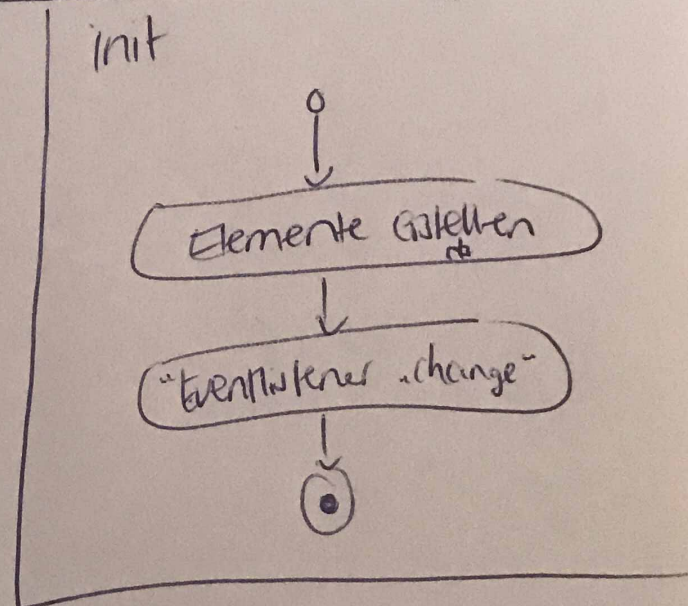 init
Elemente Erstellen
"Eventlistener „change"